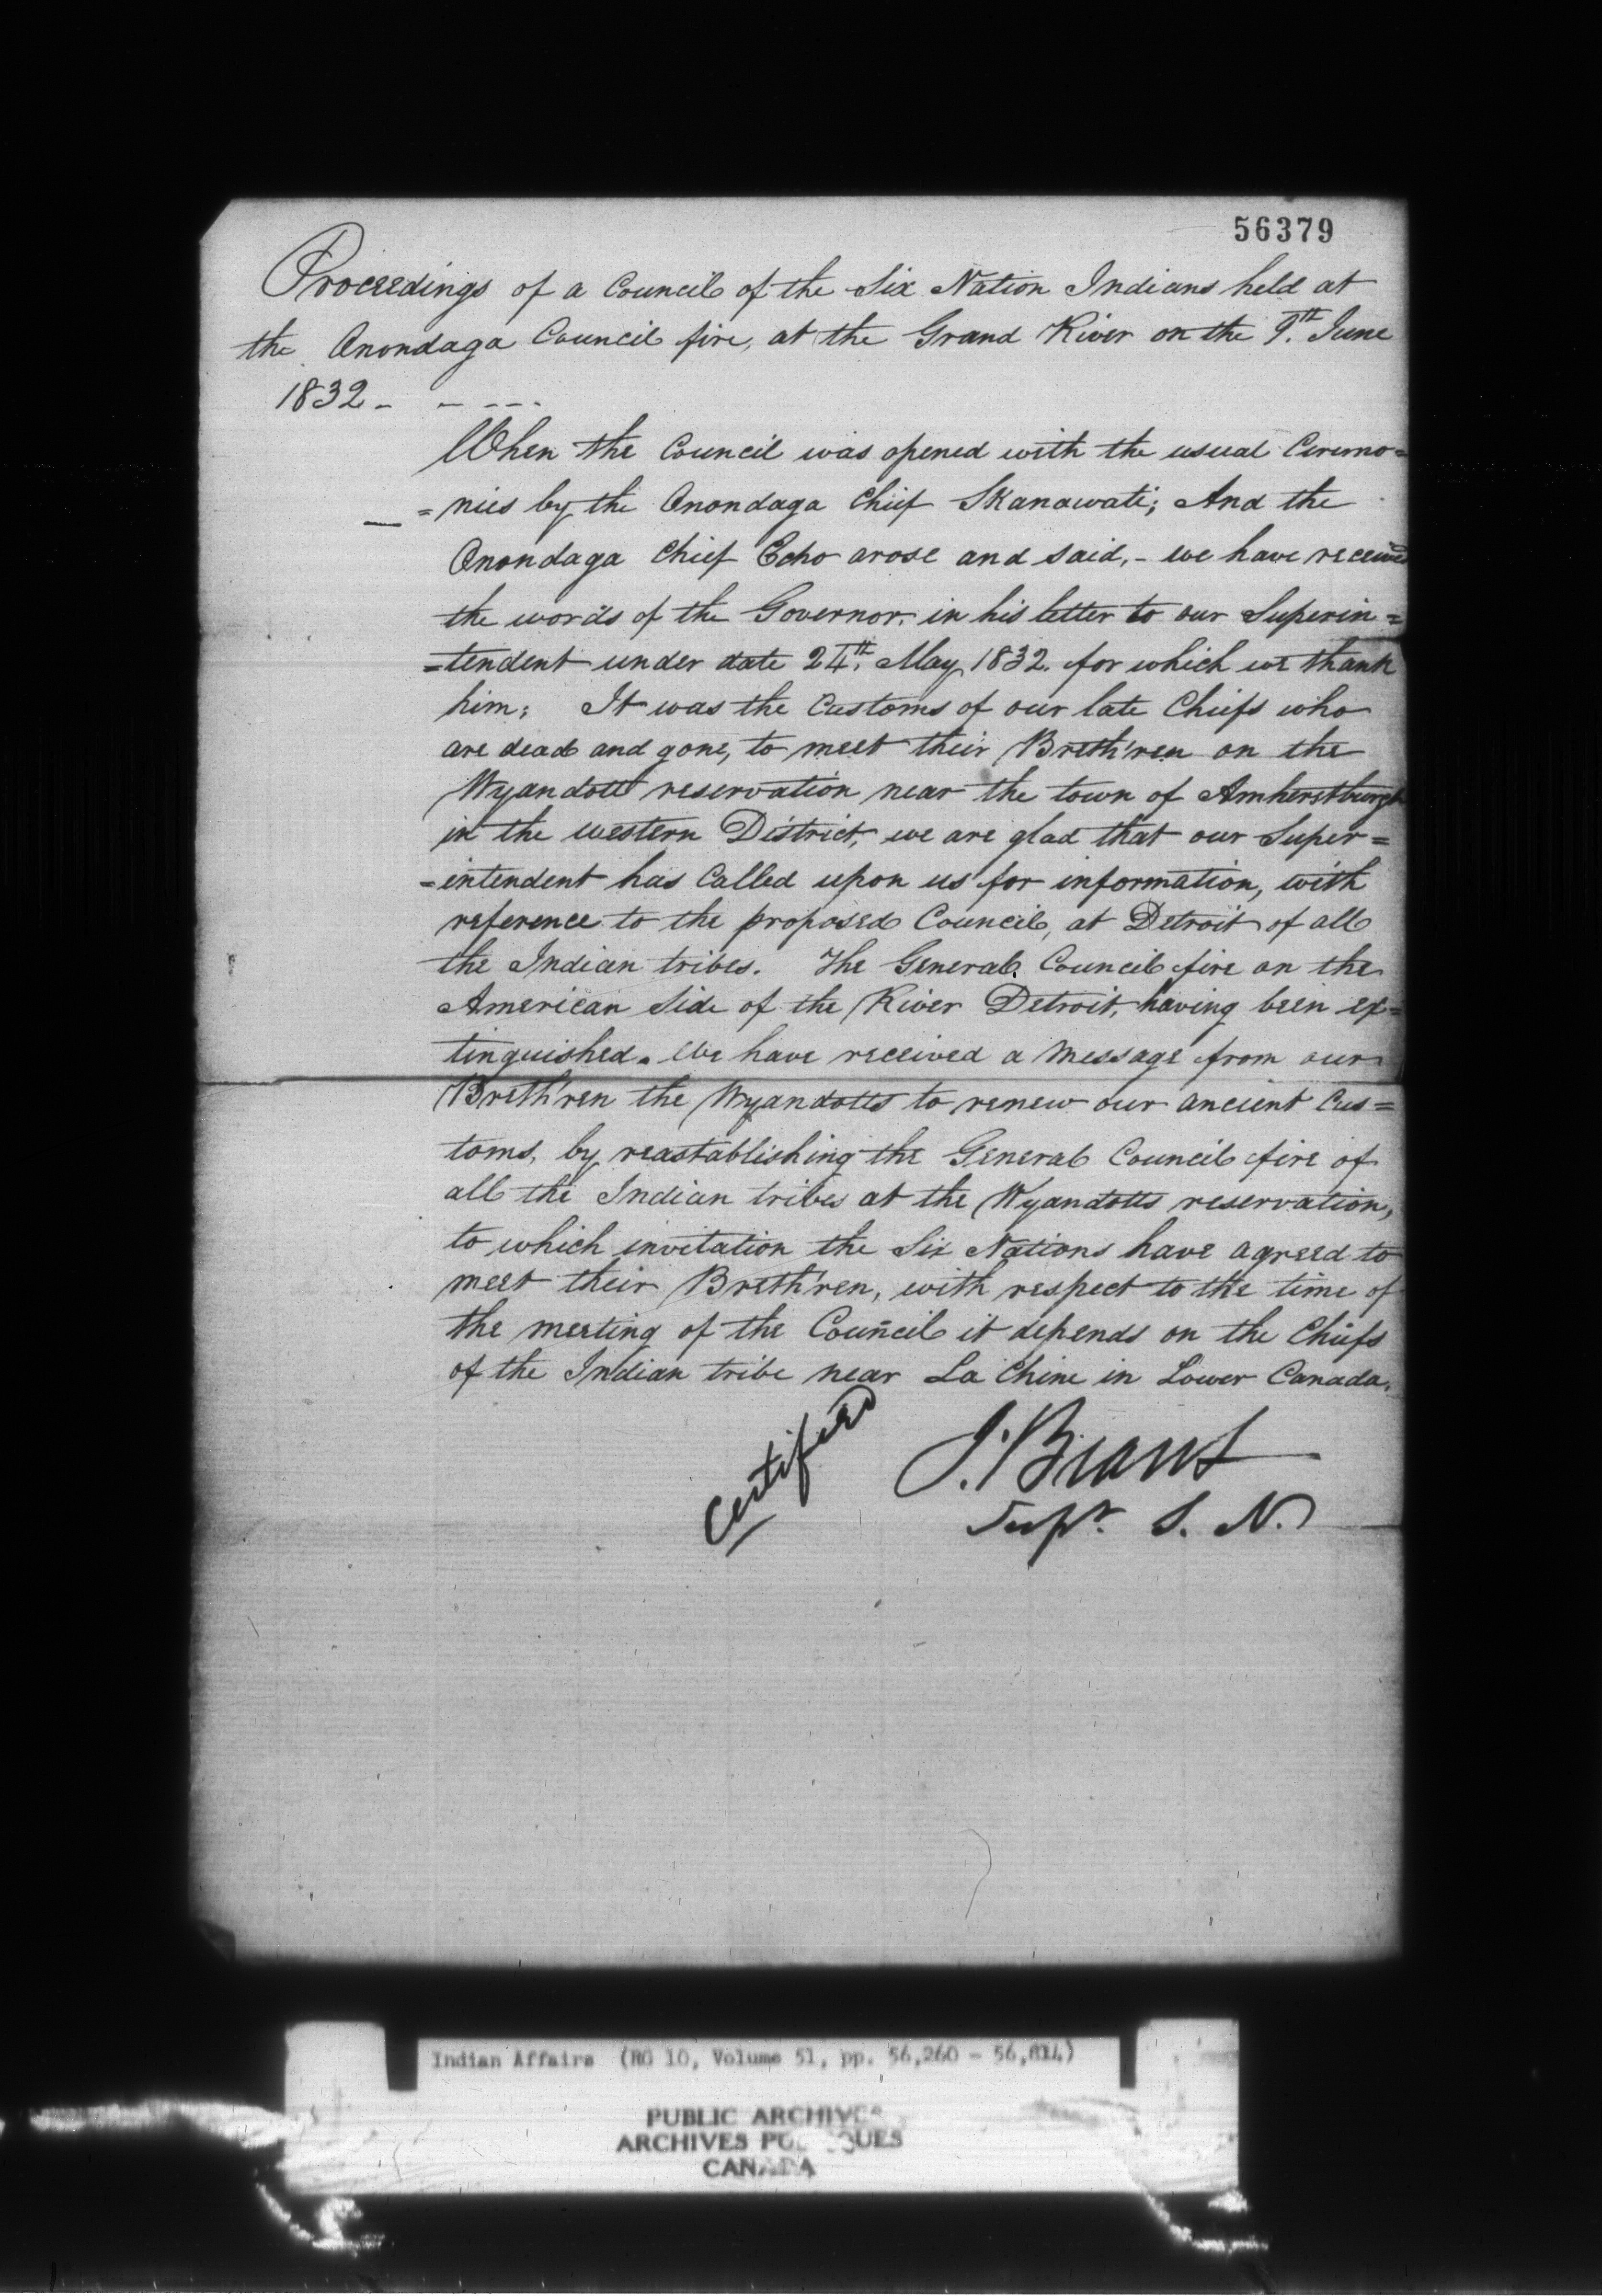 56379
Proceedings of a Council of the Six Nation Indians held at
the Onondaga Council fire, at the Grand River on the 9th. June
1832 - - - - -
When the Council was opened with the usual Ceremo=
=nies by the Onondaga Chief Skanawati; And the
Onondaga Chief Echo arose and said, - we have received
the words of the Governor. in his letter to our Superin=
=tendent under date 24th. May, 1832. for which we thank
him; It was the Customs of our late Chiefs who
are dead and gone, to meet their Breth'ren on the
Wyandott reservation near the town of Amherstburgh
in the western District, we are glad that our Super=
=intendent has Called upon us for information, with
reference to the proposed Council, at Detroit of all
the Indian tribes. The General Council fire on the
American Side of the River Detroit, having been ex=
tinguished. We have received a Message from our
Breth'ren the Wyandotts to renew our ancient Cus=
toms, by reastablishing the General Council fire of
all the Indian tribes at the Wyandotts reservation,
to which invitation the Six Nations have agreed to
meet their Breth'ren, with respect to the time of
the meeting of the Council it depends on the Chiefs
of the Indian tribe near La Chine in Lower Canada.
Certified
J. Brant
Supt. S. N.
Indian Affairs (RG 10, Volume 51, pp. 56,260 - 56,814)
PUBLIC ARCHIVES
ARCHIVES PUBLIQUES
CANADA